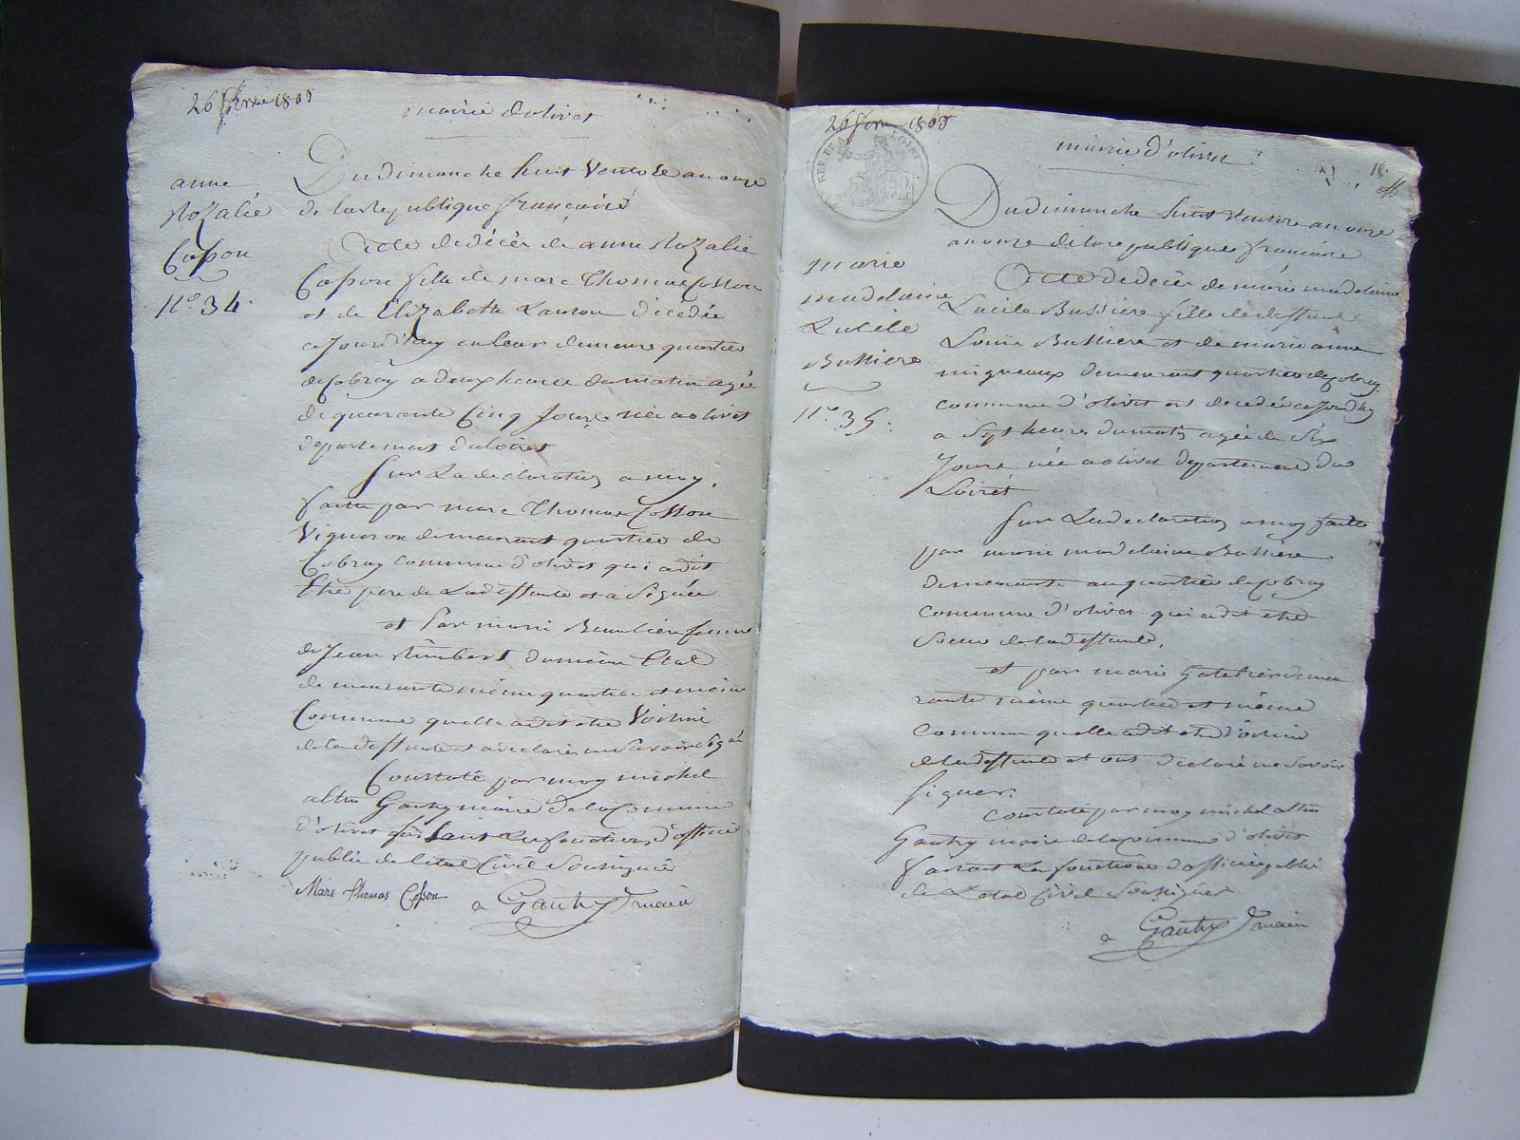 26 février 1803
mairie d'olivet
Du dimanche huit Ventose an onze
de la republique françoise
anne
Rozalie
Cosson
n.° 34.
Acte de décès de anne Rozalie
Cosson fille de marc Thomas Cosson
et de Elizabeth décédée
ce jourd'huy en leur demeure quartier
de Cobray a deux heures du matin agée
de quarante Cinq Jours née a olivet
departement du loiret
Sur La declaration a moy
faitte par marc Thomas Cosson
Vigneron demeurant quartier de
Cobray commune d'olivet qui a dit
Etre pere de La deffunte et a Signée
et Par marie Beaulieu femme
de Jean Rimbert du même Etat
demeurante même quartier et même
Commune quelle a dit etre Voisine
de la deffunte et a declaré ne Savoir signé
Constaté par moy michel
altin Gautry maire de la Commune
d'olivet faisant Les fonctions d'officier
public de l'etat Civil Soussigné
Marc thomas Cosson Gautry maire
26 fevrier 1803
mairie d'olivet
18.
Du dimanche huit Ventose an onze
an onze de la republique francoise
marie
madelaine
Lucile
Bussiere
n.° 35.
Acte de decès de marie madelaine
Lucile Bussiere fille de deffunt
Louis Bussiere et de marie anne
migneaux demeurant quartier de Cobray
commune d'olivet et decedée ce jourd'huy
a Sept heures du matin agée de Six
Jours née a olivet departement du
Loiret
Sur La declaration a moy faitte
par marie madelaine Bussiere
demeurante au quartier de Cobray
commune d'olivet qui a dit etre
Soeur de la deffunte.
et par marie demeu
rante même quartier et même
commune quelle a dit etre Voisine
de la deffunte et ont declaré ne Savoir
signer.
Constaté par moy michel altin
Gautry maire de la commune d'olivet
faisant Les fonctions d'officier public
de L'etat Civil Soussigné
Gautry maire